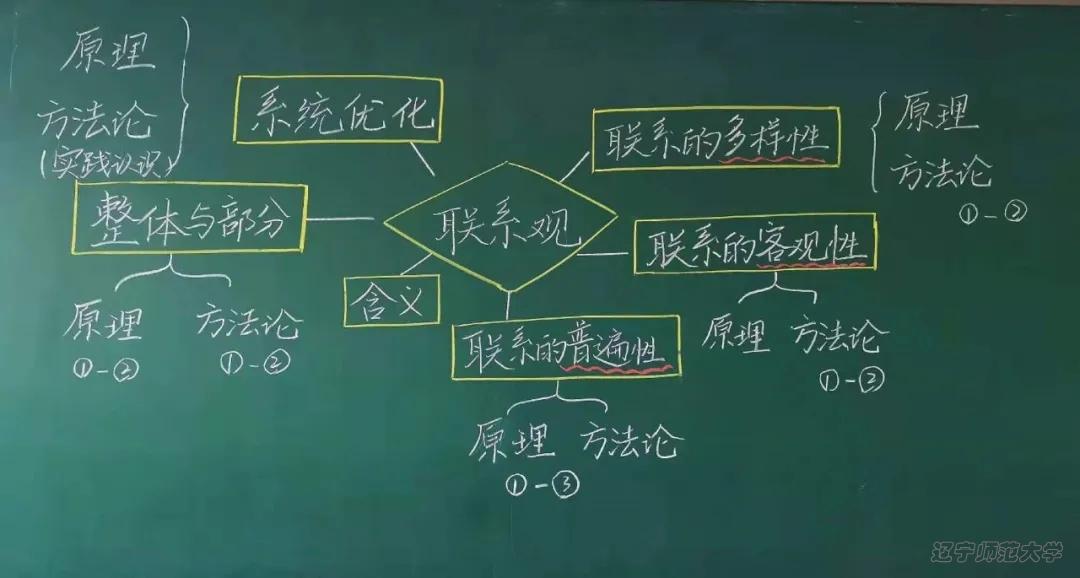 原理
方法论
(实践认识)
系统优化
联系的多样性
原理
方法论
①-②
整体与部分
原理
方法论
①-②
①-②
联系观
含义
联系的客观性
原理
方法论
①-②
联系的普遍性
原理
方法论
①-③
辽宁师范大学